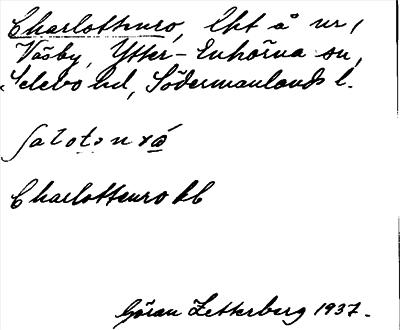 Charlottenro, Lht å nr 1
Väsby, Ytter-Enhörna sn,
Selebo hd, Södermanlands l.
Charlottenro kb
Göran Zetterberg 1937.